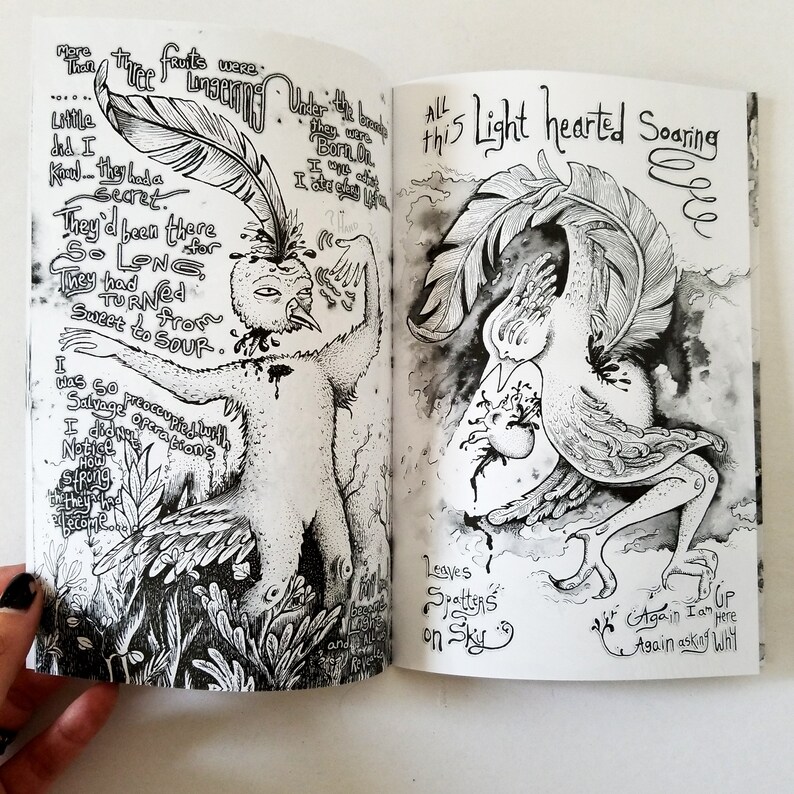 More
Than Three fruits were
Lingering Under the branche
They were
Born On.
I will admit
I ate every
......
Little
did I
Know... they had a
secret.
They'd been there
for
SO LONG,
They had
TURNED from
Sweet to SOUR.
I
was so preoccupied with
Salvage operations
I did Not
Notice
How
strong
they had
become...
became
Light
and
ALL
this Light hearted Soaring
Leaves
Spatters
on Sky
Again I am UP
Here
Again asking Why